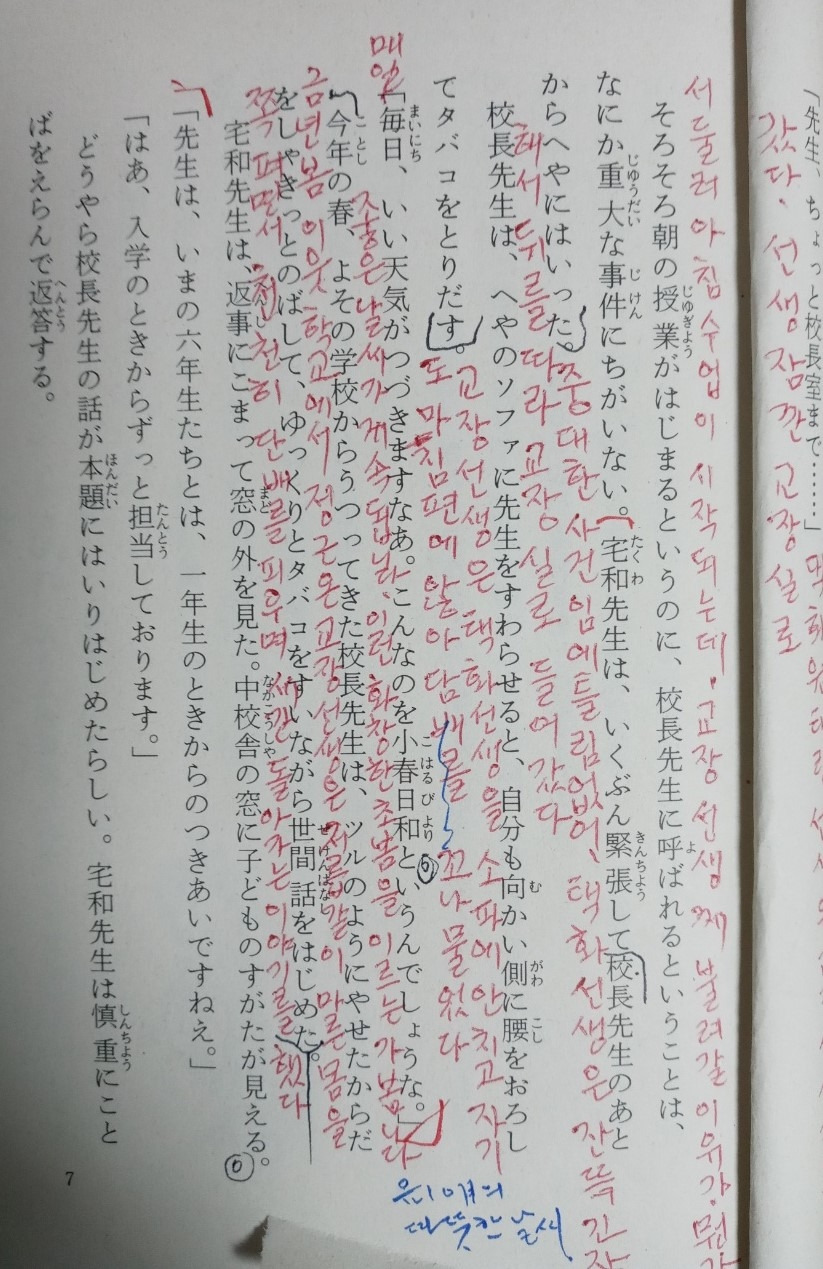 「先生、ちょっと校長室まで……」
갔다. 선생 잠깐 교장실로
서둘러 아침 수업이 시작되는데, 교장선생께 불려갈 이유가. 뭔가
じゆぎよう よ
そろそろ朝の授業がはじまるというのに、校長先生に呼ばれるということは、
じゆうだい じけん たくわ きんちよう
なにか重大な事件にちがいない。宅和先生は、いくぶん緊張して校長先生のあと
중대한 사건임에 틀림없어. 택화선생은 잔뜩 긴장
からへやにはいった。
해서 뒤를 따라 교장실로 들어갔다
む がわ こし
校長先生は、へやのソファに先生をすわらせると、自分も向かい側に腰をおろし
교장선생은 택화선생을 소파에 안치고 자기
てタバコをとりだす。
도 마침편에 않아 담배를 꼬나물었다
매일
まいにち こはるびより
「毎日、いい天気がつづきますなあ。こんなのを小春日和というんでしょうな。」
좋은날싸가 계속됩니다. 이런 화창한 초봄을 이르는가 봅니다
ことし
今年の春、よその学校からうつってきた校長先生は、ツルのようにやせたからだ
금년봄 이웃학교에서 정근온 교장선생은 저름같이 마른몸을
せけんばなし
をしゃきっとのばして、ゆっくりとタバコをすいながら世間話をはじめた。
쭉 펴면서 천천히 단배를 피우며 세간 돌아가는 이야기를 했다
へんじ まど なかこうしや
宅和先生は、返事にこまって窓の外を見た。中校舎の窓に子どものすがたが見える。
「先生は、いまの六年生たちとは、一年生のときからのつきあいですねえ。」
たんとう
「はあ、入学のときからずっと担当しております。」
ほんだい しんちよう
どうやら校長先生の話が本題にはいりはじめたらしい。宅和先生は慎重にこと
へんとう
ばをえらんで返答する。
따뜻한 날씨
7